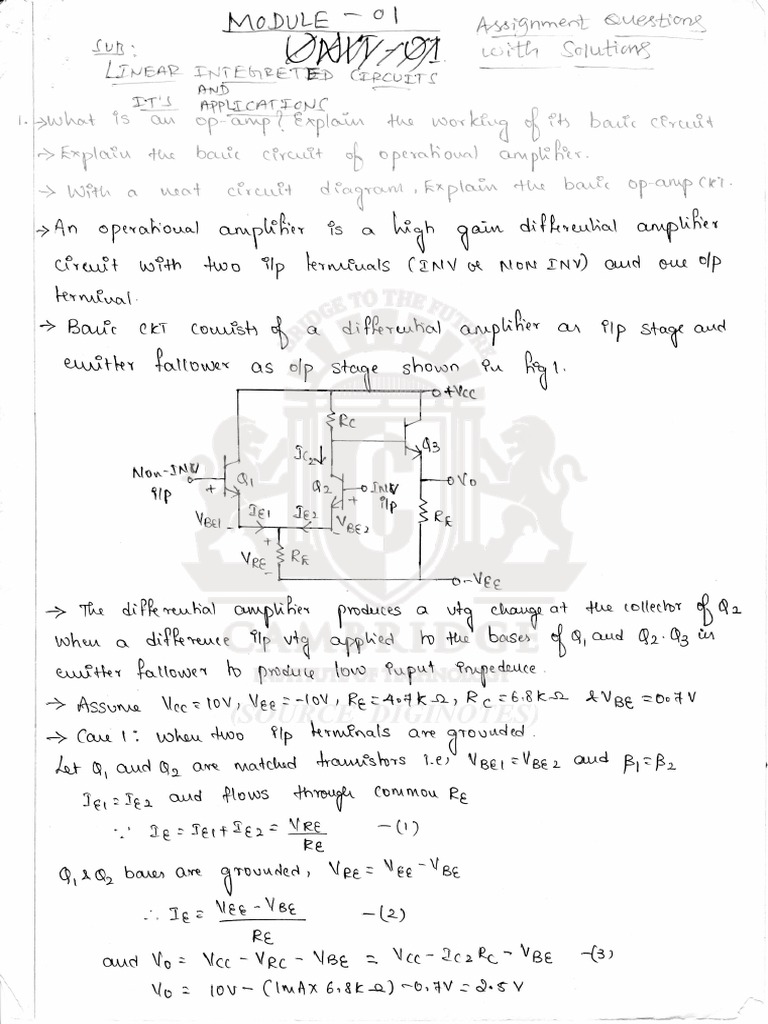 MODULE - 01
Assignment Questions
with Solutions
SUB:
LINEAR INTEGRETED CIRCUITS
AND
IT'S APPLICATIONS
1. → What is an op-amp? Explain the working of its basic circuit
→ Explain the basic circuit of operational amplifier.
→ With a neat circuit diagram, Explain the basic op-amp CKT.
→ An operational amplifier is a high gain differential amplifier
circuit with two i/p terminals (INV & NON INV) and one o/p
terminal.
→ Basic CKT consists of a differential amplifier as i/p stage and
emitter fallower as o/p stage shown in fig 1.
BRIDGE TO THE FUTURE
+VCC
RC
Q3
IC2↓
Non-INV
i/p
+
Q1
Q2
INV
i/p
+
VO
VBE1
-
IE1
IE2
-
VBE2
RE
+
VRE
-
RE
-VEE
→ The differential amplifier produces a vtg change at the collector of Q2
when a difference i/p vtg applied to the bases of Q1 and Q2. Q3 is
CAMBRIDGE
emitter fallower to produce low input impedence.
INSTITUTE OF TECHNOLOGY
→ Assume VCC = 10V, VEE = -10V, RE = 4.7kΩ, RC = 6.8kΩ & VBE = 0.7V
(SOURCE DIGINOTES)
→ Case 1: when two i/p terminals are grounded.
Let Q1 and Q2 are matched transistors i.e; VBE1 = VBE2 and β1 = β2
IE1 = IE2 and flows through common RE
∵ IE = IE1 + IE2 = VRE/RE - (1)
Q1 & Q2 bases are grounded, VRE = VEE - VBE
∴ IE = VEE - VBE/RE - (2)
and VO = VCC - VRC - VBE = VCC - IC2 RC - VBE - (3)
VO = 10V - (1mA X 6.8kΩ) - 0.7V = 2.5V